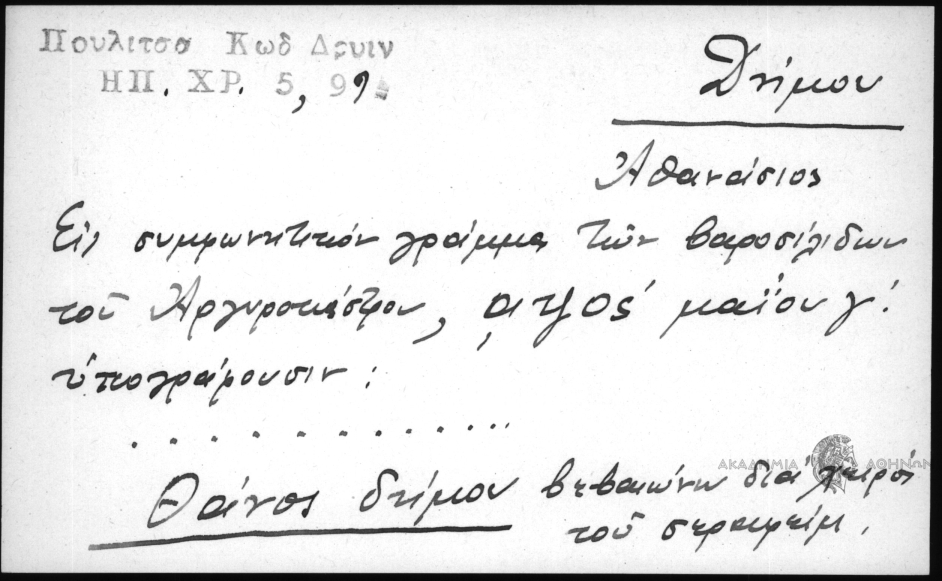 Πουλιτσα Κωδ Δρυιν
ΗΠ. ΧΡ. 5, 99
Δήμου
Ἀθανάσιος
Εἰς συμφωνητικόν γράμμα τῶν βαροσιλιδων
τοῦ Ἀργυροκάστρου, ͵αψος΄ μαΐου γ΄.
ὑπογράφουσιν:
. . . . . . . . . . . . .
Θάνος δήμου βεβαιώνω διά χειρός
τοῦ σεραφείμ.
ΑΚΑΔΗΜΙΑ ΑΘΗΝΩΝ